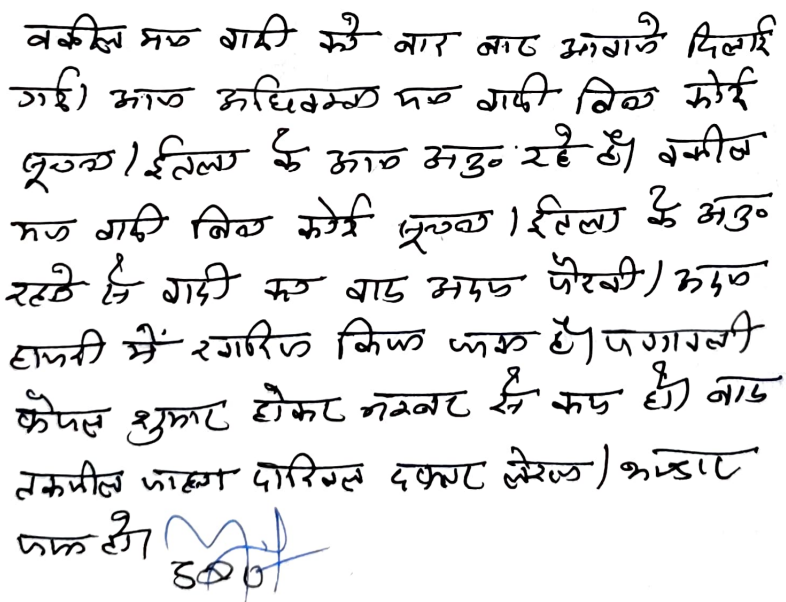 वकील मय वादी को बार बार आवाजे दिलाई
गई। आज अधिवक्ता मय वादी बिना कोई
सूचना / ईतला के आज अनु० रहे है। वकील
मय वादी बिना कोई सूचना / ईतला के अनु०
रहने से वादी का वाद अदम पैरवी / अदम
हाजरी में खारिज किया जाता है। पत्रावली
फैसल शुमार होकर नम्बर से कम हो। बाद
तकमील जाब्ता दाखिल दफ्तर लेखा / भण्डार
जमा हो।